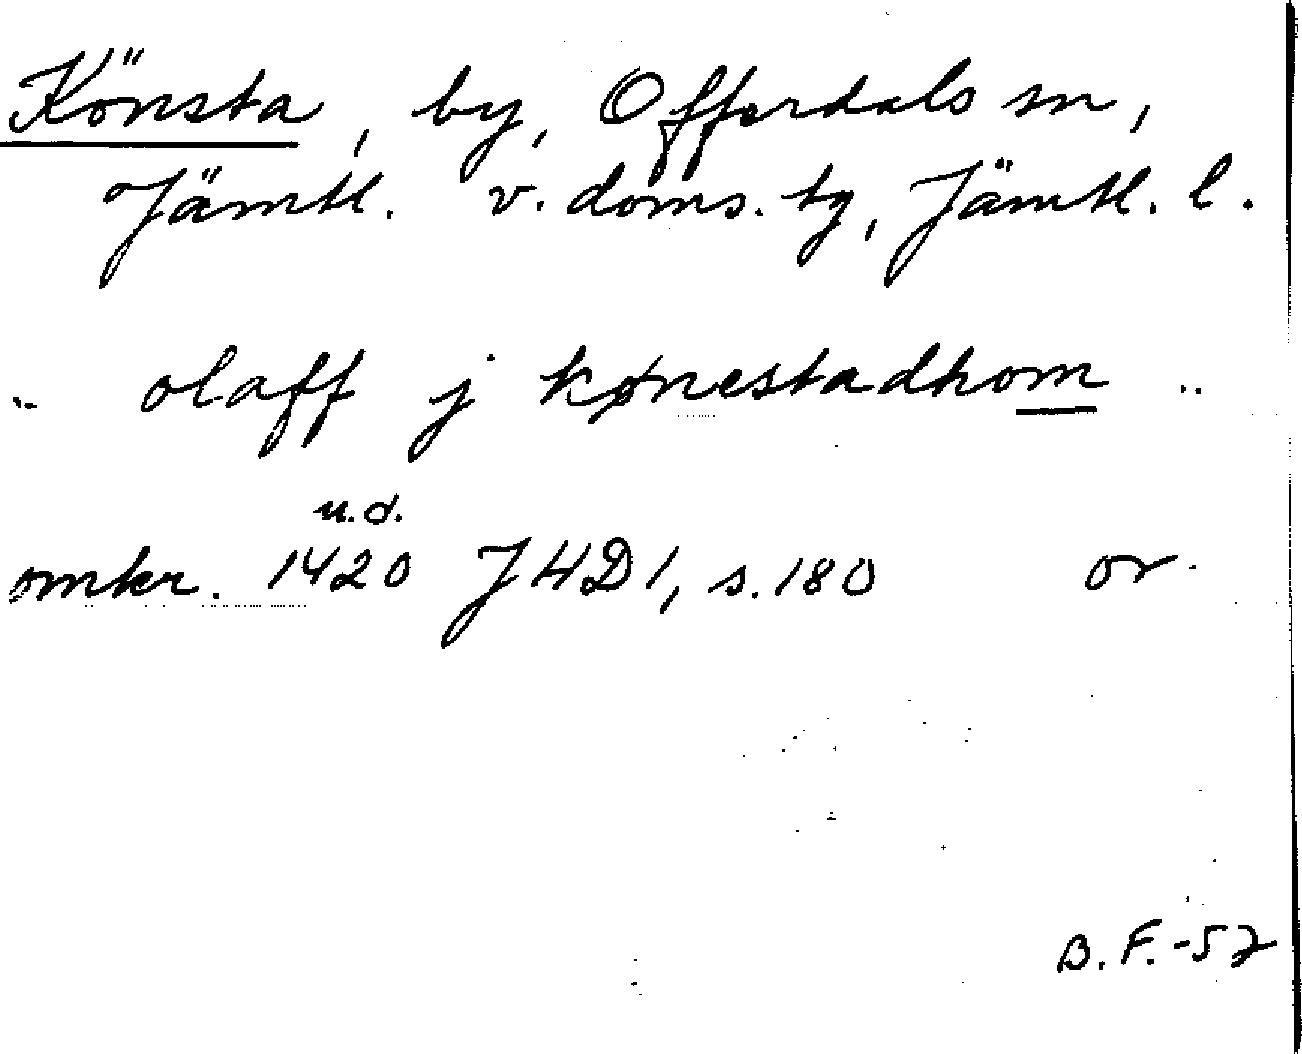 Könsta, by, Offerdals sn,
Jämtl. v. doms. tg, Jämtl. l.
.. olaff j kønestadhom ..
u.d.
omkr. 1420 JHD1, s.180 or.
B.F.-52